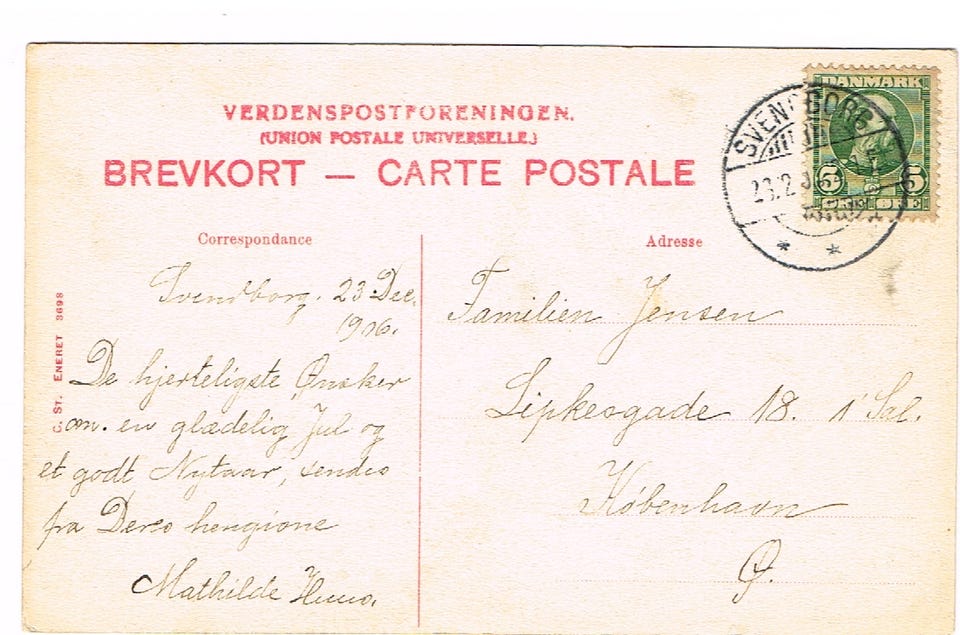 VERDENSPOSTFORENINGEN.
(UNION POSTALE UNIVERSELLE.)
BREVKORT — CARTE POSTALE
DANMARK
5 5
ØRE
SVENDBORG
23.12
Correspondance
Svendborg. 23 Dec.
1906.
De hjerteligste Ønsker
om en glædelig Jul og
et godt Nytaar, sendes
fra Deres hengivne
Mathilde
C. ST. ENERET 3698
Adresse
Familien Jensen
Lipkesgade 18. 1' Sal.
København
Ø.